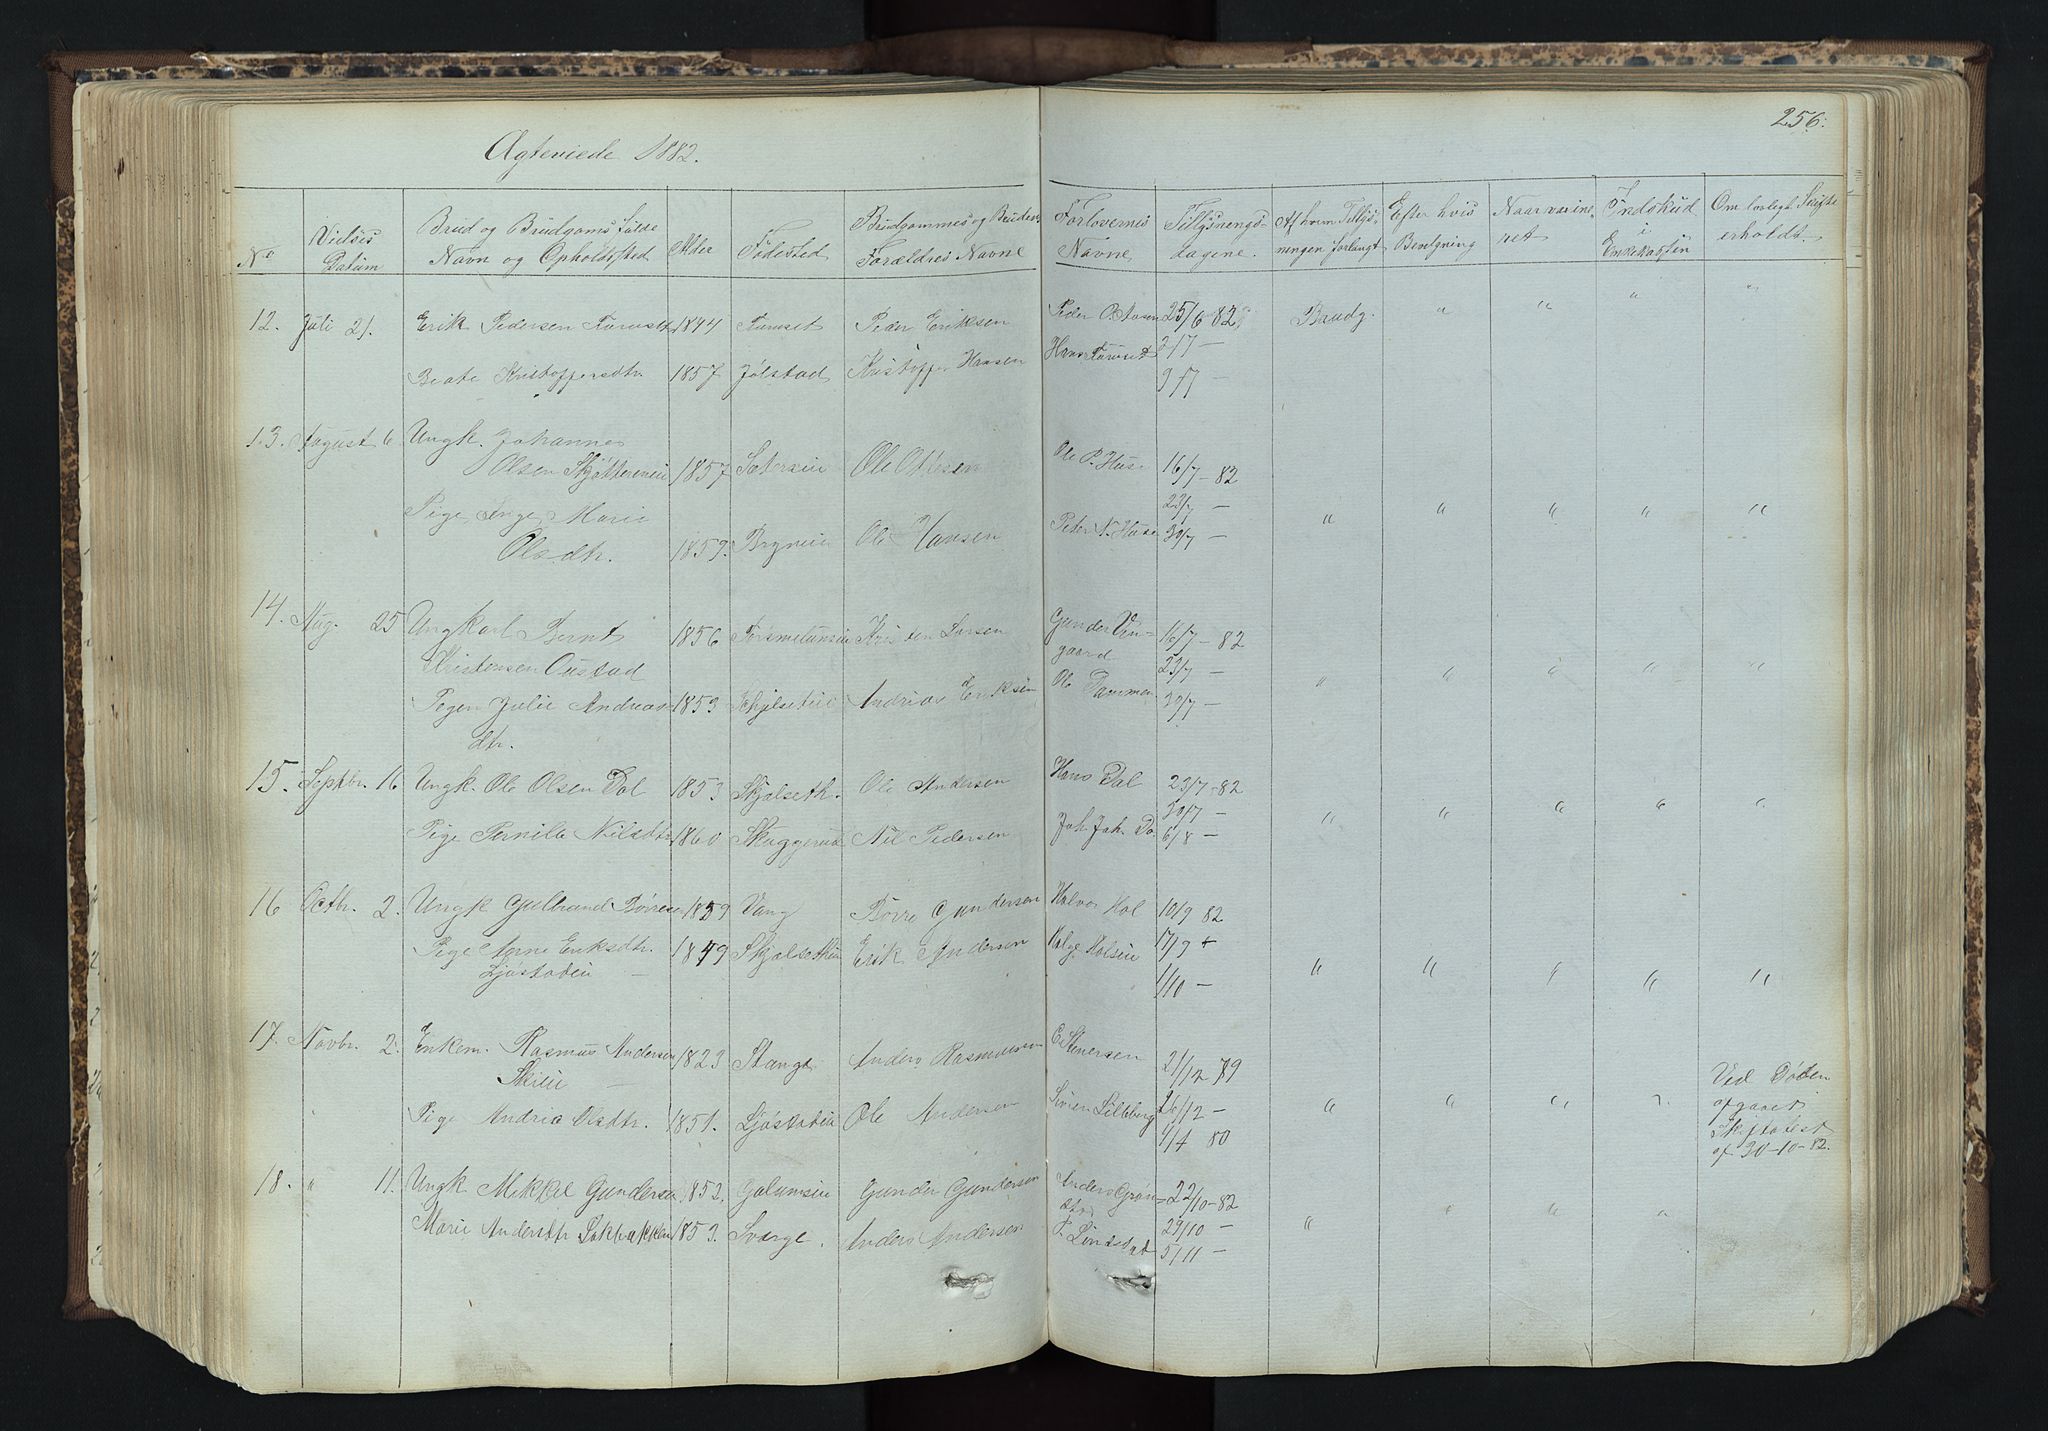 256.
Ægteviede 1882.
No
Vielses Datum
Brud og Brudgoms fulde Navn og Opholdssted
Alder
Fødested
Brudgommes og Brudens Forældres Navne
Forlovernes Navne
Tillysnings-dagene.
Af hvem Tillysningen forlangt
Efter hvis Bevilgning
Naar værine-ret
Indskud i Enkekassen
Om lovlegt Skifte erholdt.
12. Juli 21. Erik Pedersen Furuset 1844 Furuset Peder Eriksen Peder Olasen 25/6 82 Baudg. " " " "
Hans Furuset 2/7 —
Beate Kristoffersdtr. 1857 Jølstad Kristoffer Hansen 9/7 —
13. August 6 Ungk. Johannes
Olsen Skjøttereneie 1857 Sæterseie Ole Ottesen Ole P. Huse 16/7 — 82
Pige Inge Marie 23/7 — " " " " "
Olsdtr. 1859. Bryneie Ole Hansen Peder N. Huse 30/7 —
14. Aug. 25 Ungkarl Bernt 1856 Kristen Larsen Gunder Vin- 16/7 — 82
Kristensen Oustad gaard 23/7 — " " " " "
Pigen Julie Andreas 1853 Skjelseteie Andrias Eriksen Ole Tammen 30/7 —
dtr.
15. Septbr. 16 Ungk. Ole Olsen Dal 1853 Skjælseth. Ole Andersen Hans Dal 23/7 — 82
30/7 — " " " " "
Pige Pernille Nilsdtr 1860 Skuggerud Nil Pedersen Joh. Joh. Da 6/8 —
16 Octbr. 2. Ungk Gulbrand Børresen 1859 Vang Børre Gundersen Halvor Hol 10/9 82
Pige Anne Eriksdtr. 1849 Skjælsetheie Erik Andersen Helge Holseie 17/9 +
Ljøstadeie — 1/10 — " " " " "
17. Novbr. 2. Enkem. Rasmus Andersen 1823 Stange Anders Rasmussen E. Stenersen 21/12 79
Skieie — Ved Døden
Pige Andrea Olsdtr. 1851. Ljøstadeie Ole Andersen Lilleberg 26/12 — " " " " afgaaet
1/4 80 Skiftatest
af 30-10-82.
18. " 11. Ungk Mikkel Gundersen 1852. Galumseie Gunder Gundersen Anders Grøn- 22/10 — 82
stad
Marie Andersdtr Bakbakken 1853. Sværge. Anders Andersen P. Lindstad 29/10 — " " " "
5/11 —